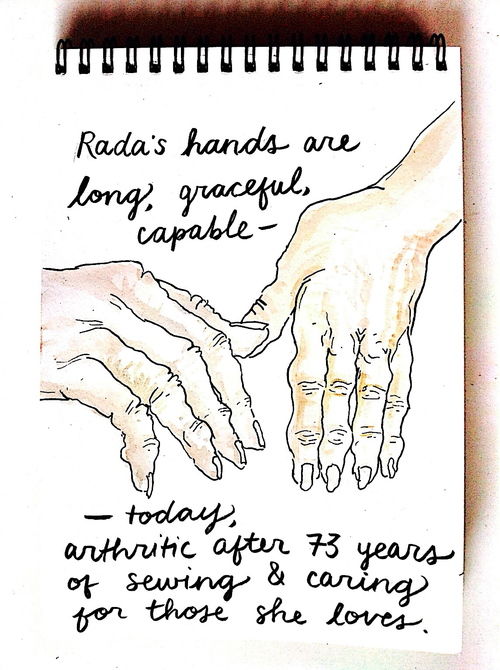 Rada's hands are
long, graceful,
capable—
— today,
arthritic after 73 years
of sewing & caring
for those she loves.